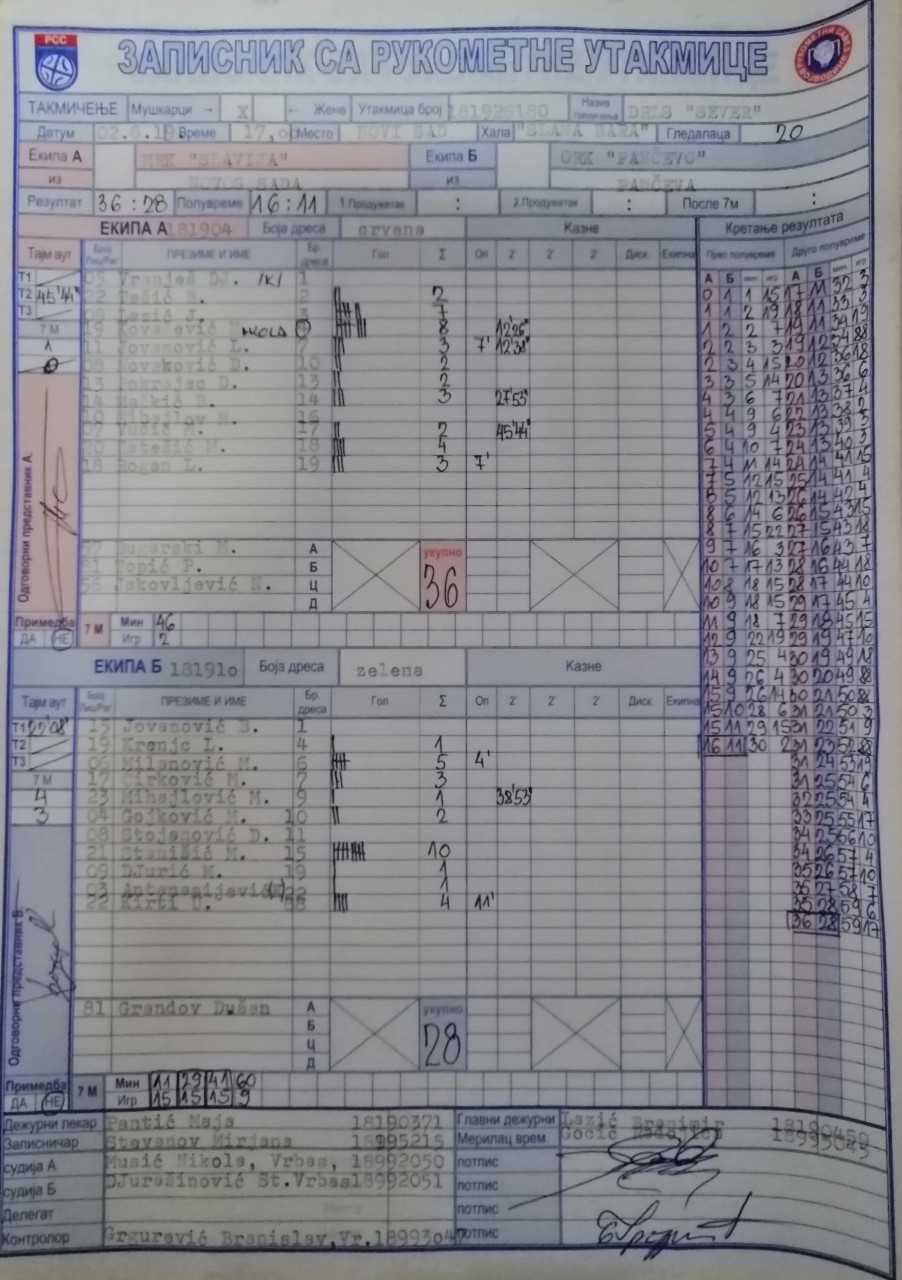 РСС
ЗАПИСНИК СА РУКОМЕТНЕ УТАКМИЦЕ
ТАКМИЧЕЊЕ Мушкарци → X ← Жене Утакмица број 181926180 DRLS "SEVER"
Датум 02.6.19 Време 17,0 Место NOVI SAD Хала "SLANA BARA" Гледалаца 20
Екипа А MRK "SLAVIJA" Екипа Б ORK "PANČEVO"
из NOVOG SADA из PANČEVA
Резултат 36:28 Полувреме 16:11 1.Продужетак : 2.Продужетак : После 7м :
ЕКИПА А 181904 Боја дреса crvena Казне Кретање резултата
Тајм аут ПРЕЗИМЕ И ИМЕ Бр. дреса Гол Σ Оп 2' 2' 2' Диск. Екипна
Прво полувреме Друго полувреме
А Б мин. игр А Б мин. игр
T1 05 Vranješ DJ. /K/ 1
T2 45'44" 22 Tešić B. 2 2
T3 09 Lazić J. 3 7
7 М 19 Kovačević NIKOLA 8 12'26"
1 11 Jovanović L. 7 3 7' 12'38"
0 08 Novaković D. 10 2
13 Pokrajac D. 13 2
14 Maškić B. 14 3 27'53"
10 Mihajlov M. 16
07 Vučić M. 17 2 45'44"
20 Latešić M. 18 4
18 Rogan L. 19 3 7'
Одговорни представник А.
57 Dugarski M. А укупно
81 Topić P. Б 36
56 Jakovljević N. Ц
Д
Примедба 7 М Мин 46
ДА НЕ Игр 2
ЕКИПА Б 181910 Боја дреса zelena Казне
Тајм аут ПРЕЗИМЕ И ИМЕ Бр. дреса Гол Σ Оп 2' 2' 2' Диск. Екипна
T1 22'08" 15 Jovanović B. 1
T2 19 Krenjc L. 4 1
T3 06 Milanović M. 6 5 4'
7 М 17 Ćirković M. 7 3
4 23 Mihajlović M. 9 1 38'53"
3 04 Gojković M. 10 2
08 Stojanović D. 11
21 Stanišić M. 15 10
09 DJurić M. 19 1
03 Antanasijević 22 1
22 Kirti O. 88 4 11'
Одговорни представник Б.
81 Grandov Dušan А укупно
Б 28
Ц
Д
Примедба 7 М Мин 11 29 41 60
ДА НЕ Игр 15 15 15 9
0 1 1 15 17 11 32 3
1 1 2 19 18 11 33 3
1 2 2 7 19 11 34 19
2 2 3 3 19 12 34 88
2 3 4 15 20 12 36 18
3 3 5 14 20 13 36 6
4 3 6 7 21 13 37 4
4 4 9 6 22 13 38 2
5 4 9 4 23 13 39 3
6 4 10 7 24 13 40 3
7 4 11 14 24 14 41 15
7 5 12 15 25 14 41 4
8 5 12 13 26 14 42 4
8 6 14 6 26 15 43 15
8 7 15 22 27 15 43 18
9 7 16 3 27 16 43 7
10 7 17 13 28 16 44 18
10 8 18 15 28 17 44 10
10 9 18 15 29 17 45 4
11 9 18 7 29 18 45 15
12 9 22 19 29 19 47 10
13 9 25 4 30 19 49 18
14 9 26 4 30 20 49 88
15 9 26 14 30 21 50 88
15 10 28 6 31 21 50 3
15 11 29 15 31 22 51 9
16 11 30 2 31 23 52 88
31 24 53 19
31 25 54 6
32 25 54 4
33 25 55 17
34 25 56 10
34 26 57 4
35 26 57 10
35 27 58 7
35 28 59 6
36 28 59 17
Дежурни лекар Pantić Maja 18190371 Главни дежурни Lazić Branimir 18190459
Записничар Stevanov Mirjana 18995215 Мерилац врем. Gocić Radojica 18995045
судија А Musić Nikola, Vrbas, 18992050 потпис
судија Б DJurašinović St.Vrbas18992051 потпис
Делегат потпис
Контролор Grgurević Branislav,Vr.1899304 потпис